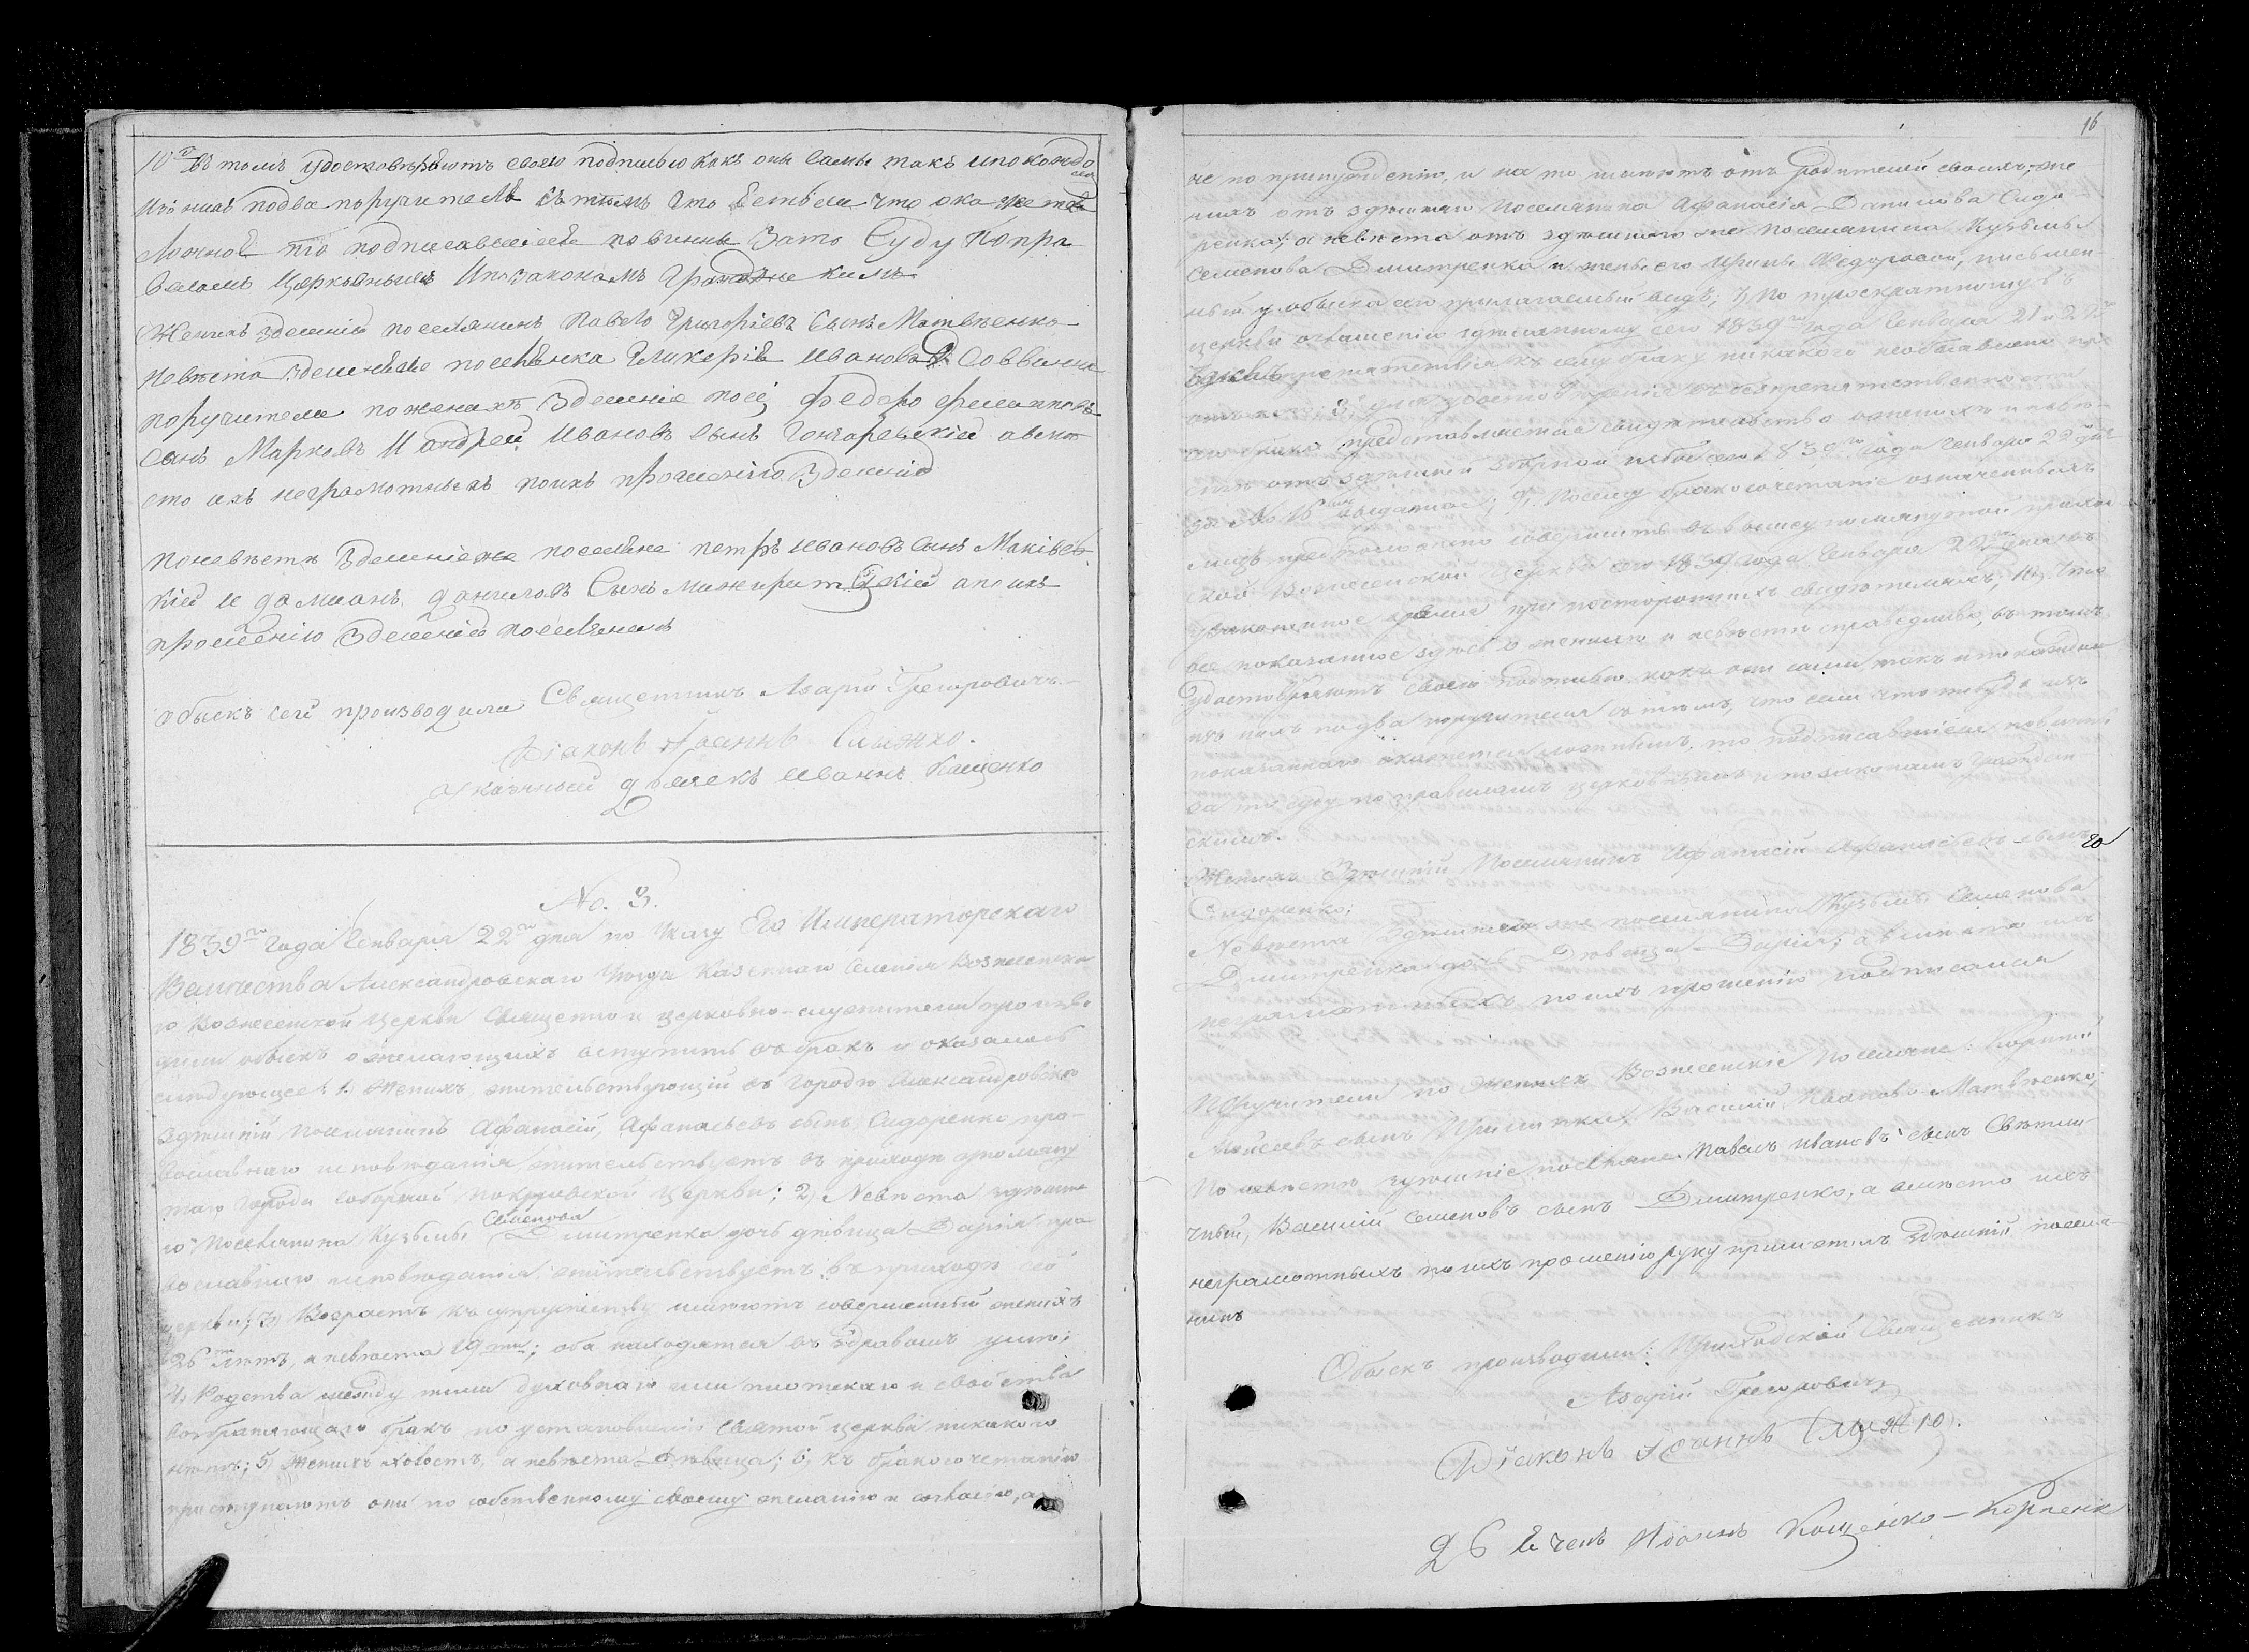 10е въ томъ удостовѣряютъ своею подписью какъ они сами такъ и по каждо
изъ нихъ подва поручителѣ
Ложное то подписавшіися повинны зато Суду попра
виломъ Церковнымъ И по законамъ Гражданскимъ
Женихъ здешній поселянинъ Павелъ Григоріевъ сынъ Матвѣенко
Невѣста здешняя поселянка Гликерія Иванова
поручители по женихѣ Здешніе посе Федоръ Филипповъ
сынъ Марковъ И андрей Ивановъ сынъ Гончаревскій авмѣ
сто ихъ неграмотныхъ поихъ прошенію Здешній
поневѣстѣ Здешніе же поселяне петръ ивановъ сынъ Маківс
кій и дамианъ даниловъ Сынъ апоихъ
прошенію здешній поселянинъ
обыскъ сей производили Священникъ Азарій Григоровичъ
Діаконъ Іоаннъ Слыжко.
Указный дьячекъ Иваннъ Кащенко
No. 3.
1839го года Генваря 22го дня по Указу Его Императорскаго
Величества Александровскаго Уезда Казеннаго Селенія Вознесенска
го Вознесенской церкви Священно и церковно-служители произво
дили обыскъ о желающихъ вступить въ бракъ и оказалось
слѣдующее: 1) Женихъ, жительствующій въ городѣ Александровскѣ
здѣшній поселянинъ Афанасій, Афанасьевъ сынъ Сидоренко пра-
вославнаго исповѣданія жительствуетъ въ приходѣ упомяну
таго города соборной Покровской церкви; 2) Невѣста здѣшня
го поселянина Кузьмы Семенова Дмитренка дочь дѣвица Дарія пра
вославнаго исповѣданія, жительствуетъ въ приходѣ сей
церкви; 3) Возрастъ къ супружеству имѣютъ совершенный женихъ
26ть лѣтъ, а невѣста 19ти; оба находятся въ здравомъ умѣ;
4) Родства между ними духовнаго или плотскаго и свойства
возбраняющаго бракъ по установленію Святой церкви никакого
нѣтъ; 5) Женихъ холостъ, а невѣста Дѣвица; 6) къ бракосочетанію
приступаютъ они по собственному своему желанію и согласію, а
16
не по принужденію, и на то имѣютъ отъ родителей своихъ: же
нихъ отъ здѣшняго поселянина Афанасія Данилова Сидо-
ренка; а невѣста отъ здѣшняго же поселянина Кузьмы
Семенова Дмитренка и жены его Ирины Федоровой, письмен-
ный у обыска сего прилагаемый видъ; 7) По троекратному въ
церкви оглашенію здѣланному сего 1839го года Генваря 21 и 22го
препятствія къ сему браку никакого необъявлено
8)
представляется свидѣтельство о женихѣ и невѣ-
стѣ отъ здѣшней сборной избы сего 1839го года Генваря 22го дня
за No 16 выданное; 9) Посему бракосочетаніе означенныхъ
лицъ предположено совершить въ вышеупомянутой приход
ской Вознесенской церкви сего 1839 года Генваря 22го дня въ
узаконенное время при постороннихъ свидѣтеляхъ; 10) Что
все показанное здѣсь о женихѣ и невѣстѣ справедливо, въ томъ
удостовѣряютъ своею подписью какъ они сами такъ и по каждом
изъ нихъ по два поручителя съ тѣмъ, что если что нибудь изъ
показаннаго окажется ложнымъ, то подписавшіеся повинны
за то суду по правиламъ церковнымъ и по законамъ Граждан
скимъ.
Женихъ Здѣшній Поселянинъ Афанасій Афанасьевъ сынъ
Сидоренко;
Невѣста Здѣшняго же поселянина Кузьмы Семенова
Дмитренка дочь Дѣвица Дарія; авмѣсто ихъ
неграмотныхъ поихъ прошенію подписался
Поручители по Женихѣ Вознесенскіе Поселяне:
Моисеевъ сынъ Василій Ивановъ Матвѣенко;
По невѣстѣ здѣшніе поселяне Павелъ Ивановъ сынъ Свѣтлич
чный, Василій Семеновъ сынъ Дмитренко, а вмѣсто ихъ
неграмотныхъ по ихъ прошенію руку приложилъ здѣшній поселя-
нинъ
Обыскъ производили: Приходской Священникъ
Азарій Григоровичъ
Діаконъ Іоаннъ Слыжко.
Дьячекъ Іоаннъ Кащенко-Карпенк